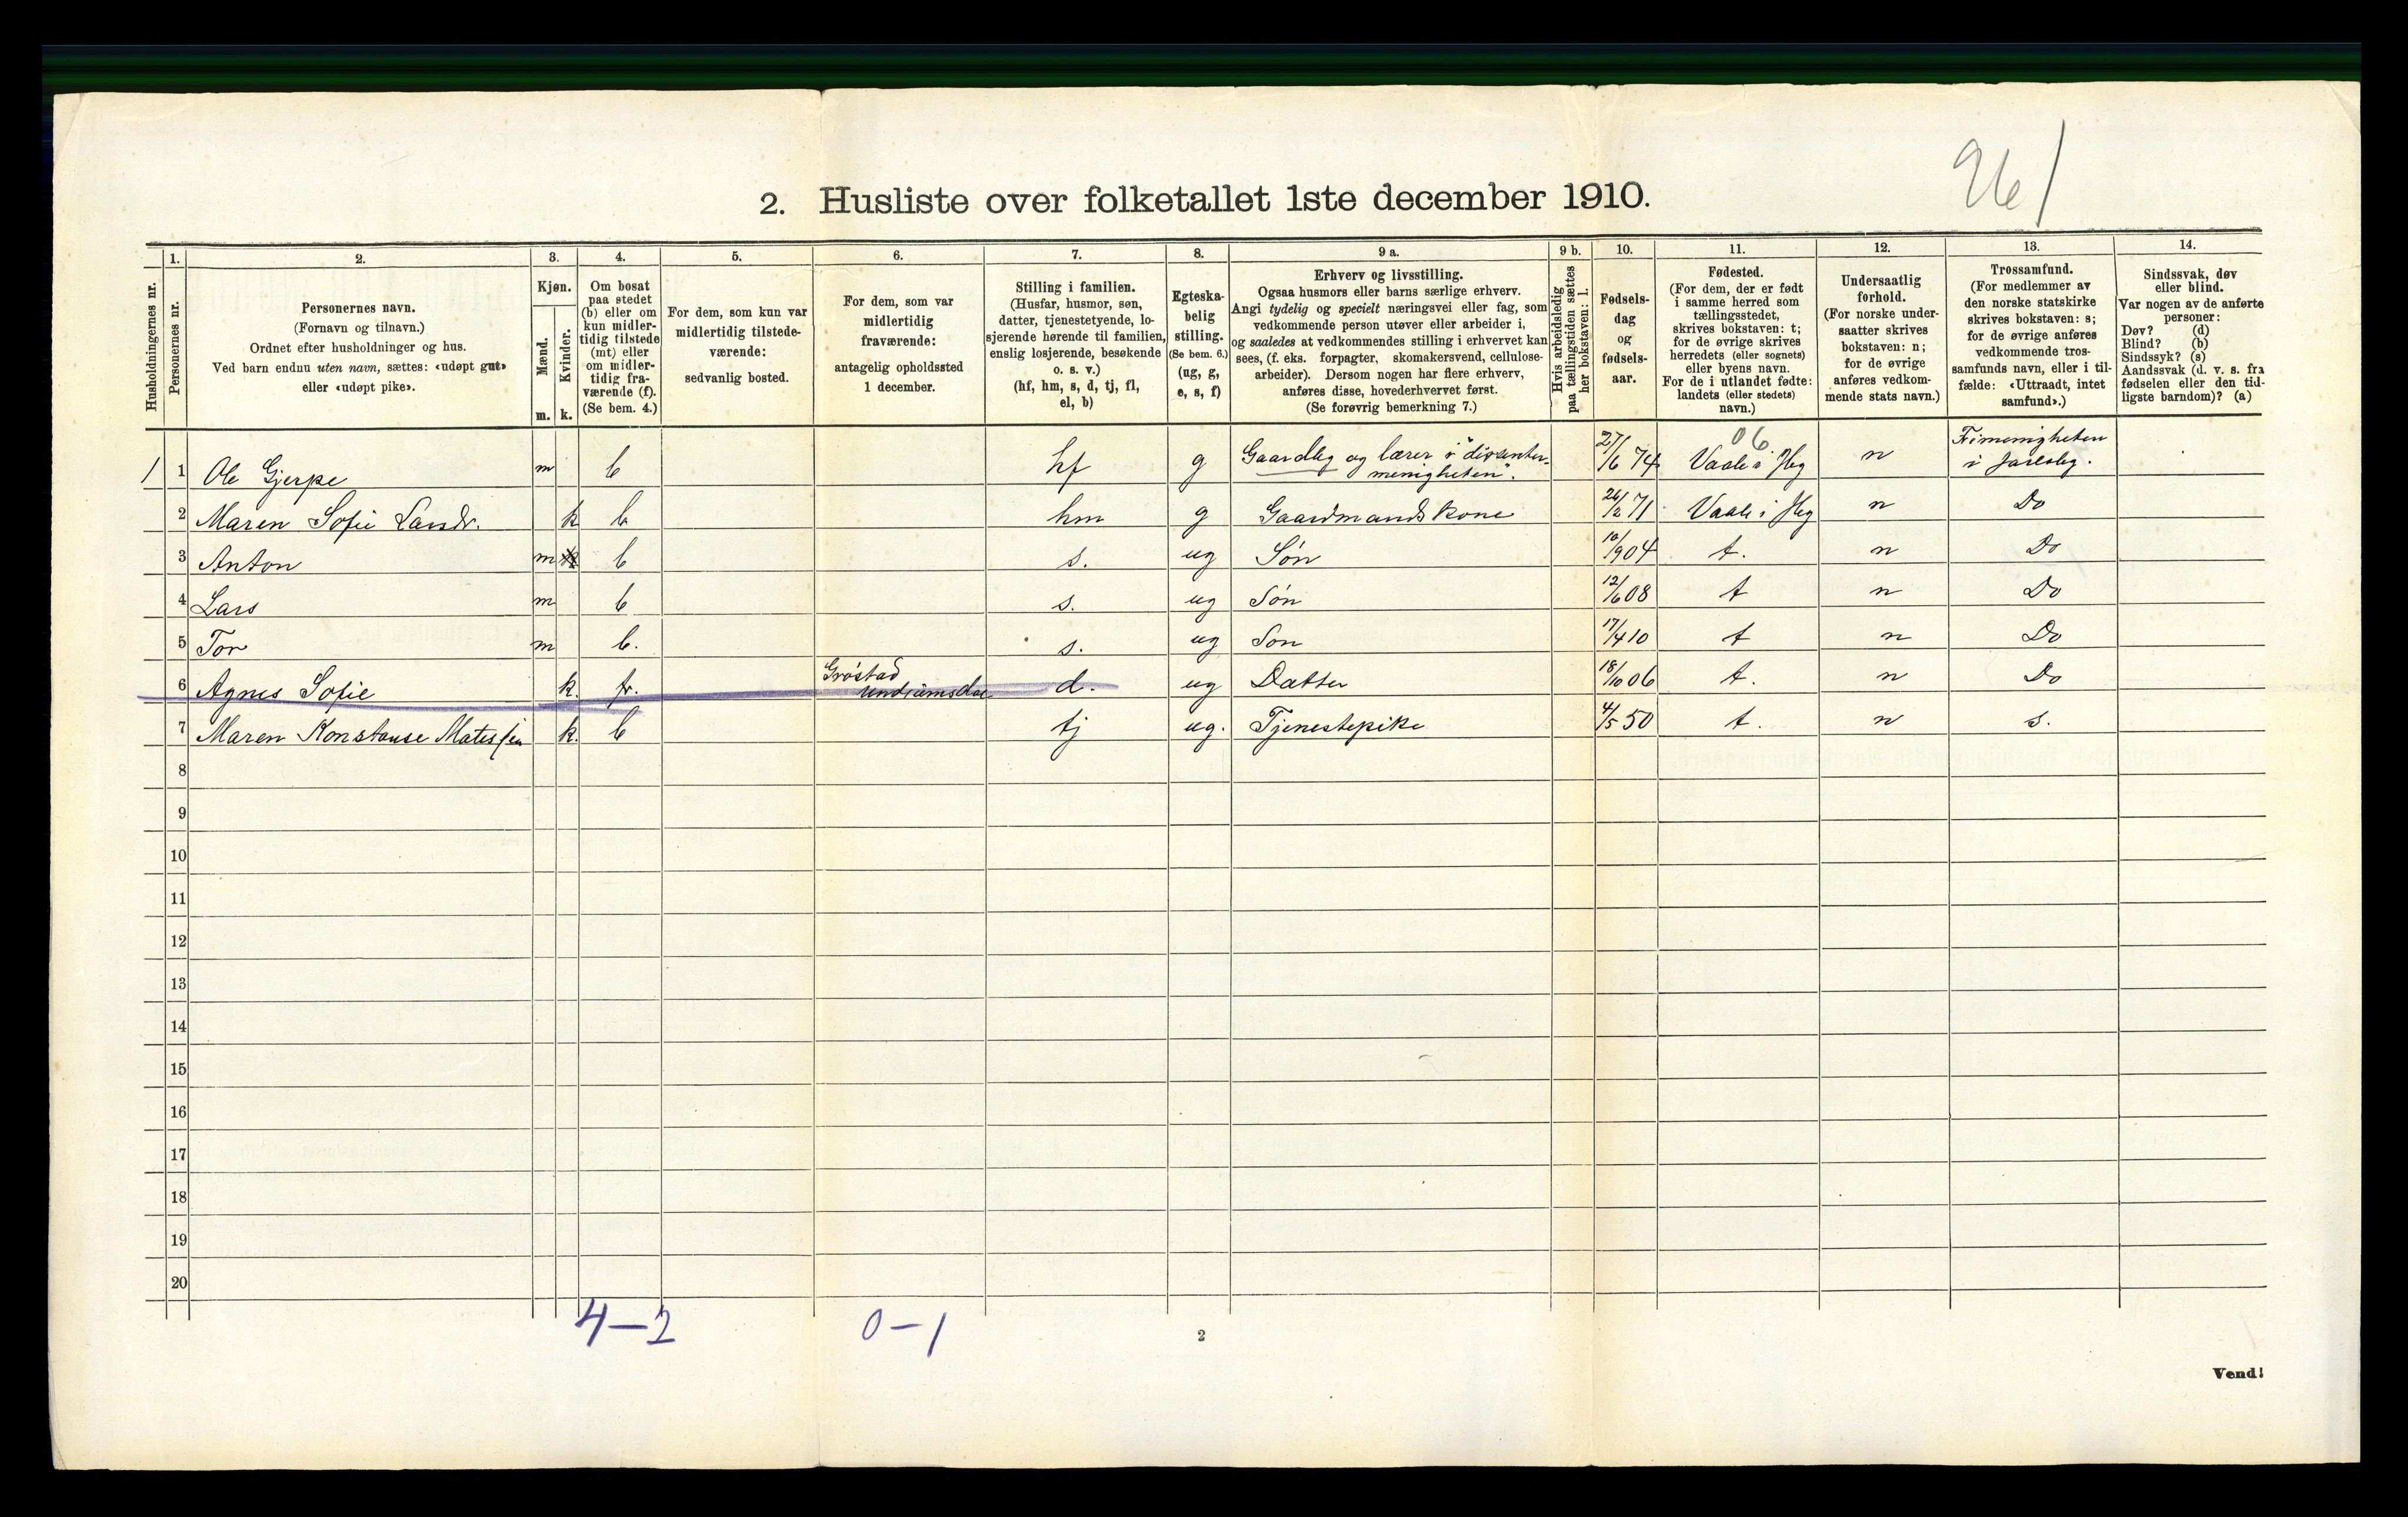 261
2. Husliste over folketallet 1ste december 1910.
Husholdningernes nr.
1. Personernes nr.
2. Personernes navn.
(Fornavn og tilnavn.)
Ordnet efter husholdninger og hus.
Ved barn endnu uten navn, sættes: «udøpt gut»
eller «udøpt pike».
3. Kjøn.
Mænd. m.
Kvinder. k.
4. Om bosat
paa stedet
(b) eller om
kun midler-
tidig tilstede
(mt) eller
om midler-
tidig fra-
værende (f).
(Se bem. 4.)
5. For dem, som kun var
midlertidig tilstede-
værende:
sedvanlig bosted.
6. For dem, som var
midlertidig
fraværende:
antagelig opholdssted
1 december.
7. Stilling i familien.
(Husfar, husmor, søn,
datter, tjenestetyende, lo-
sjerende hørende til familien,
enslig losjerende, besøkende
o. s. v.)
(hf, hm, s, d, tj, fl,
el, b)
8. Egteska-
belig
stilling.
(Se bem. 6.)
(ug, g,
e, s, f)
9 a. Erhverv og livsstilling.
Ogsaa husmors eller barns særlige erhverv.
Angi tydelig og specielt næringsvei eller fag, som
vedkommende person utøver eller arbeider i,
og saaledes at vedkommendes stilling i erhvervet kan
sees, (f. eks. forpagter, skomakersvend, cellulose-
arbeider). Dersom nogen har flere erhverv,
anføres disse, hovederhvervet først.
(Se forøvrig bemerkning 7.)
9 b. Hvis arbeidsledig
paa tællingstiden sættes
her bokstaven: l.
10. Fødsels-
dag
og
fødsels-
aar.
11. Fødested.
(For dem, der er født
i samme herred som
tællingsstedet,
skrives bokstaven: t;
for de øvrige skrives
herredets (eller sognets)
eller byens navn.
For de i utlandet fødte:
landets (eller stedets)
navn.)
12. Undersaatlig
forhold.
(For norske under-
saatter skrives
bokstaven: n;
for de øvrige
anføres vedkom-
mende stats navn.)
13. Trossamfund.
(For medlemmer av
den norske statskirke
skrives bokstaven: s;
for de øvrige anføres
vedkommende tros-
samfunds navn, eller i til-
fælde: «Uttraadt, intet
samfund».)
14. Sindssvak, døv
eller blind.
Var nogen av de anførte
personer:
Døv? (d)
Blind? (b)
Sindssyk? (s)
Aandssvak (d. v. s. fra
fødselen eller den tid-
ligste barndom)? (a)
06
1 1 Ole Gjerpe m b hf g Gaardbg og lærer i "dissenter-
menigheten". 27/6 74 Vaale i Jlbg n Frimenigheten
i Jarlsbg.
2 Maren Sofie Larsdr. k b hm g Gaardmandskone 26/2 71 Vaale i Jlbg n Do
3 Anton m b s. ug Søn 10/9 04 t. n Do
4 Lars m b s. ug Søn 12/6 08 t n Do
5 Tor m b. s. ug Søn 17/4 10 t n Do
6 Agnes Sofie k. fr. Grøstad
Undrumsdal d. ug Datter 18/10 06 t. n Do
7 Maren Konstanse Matissen k. b tj ug. Tjenestepike 4/5 50 t. n s.
8
9
10
11
12
13
14
15
16
17
18
19
20
4-2 0-1
2
Vend!